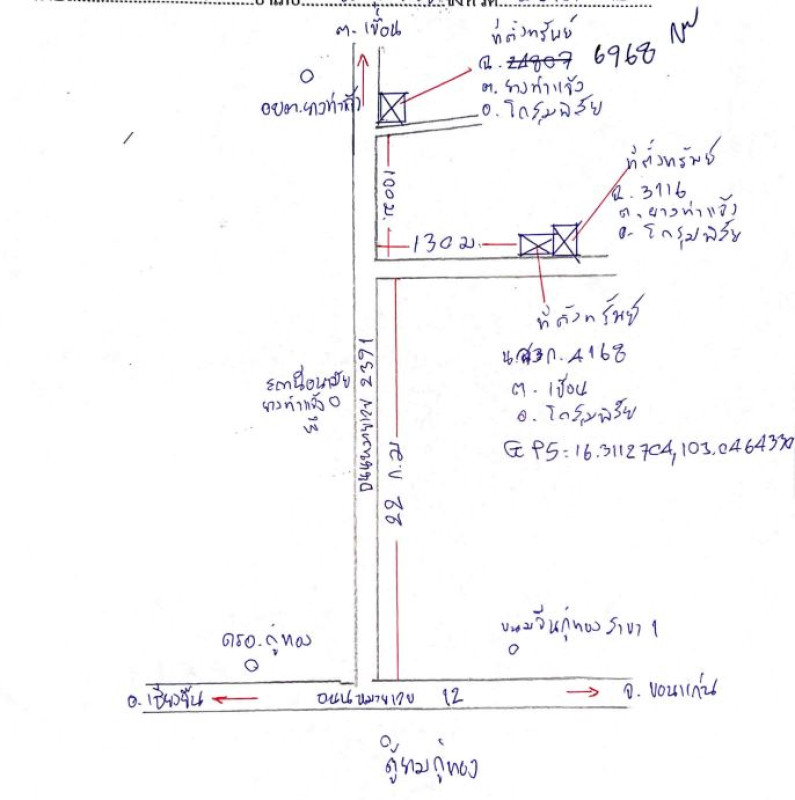 ต. เขื่อน
ที่ตั้งทรัพย์
ฉ. 21807 6968
ต. ยางท่าแจ้ง
อ. โกสุมพิสัย
อบต. ยางท่าแจ้ง
100 ม.
130 ม.
ที่ตั้งทรัพย์
ฉ. 3116
ต. ยางท่าแจ้ง
อ. โกสุมพิสัย
ที่ตั้งทรัพย์
น.ส.3ก. 4168
ต. เขื่อน
อ. โกสุมพิสัย
GPS: 16.3112704,103.0464330
สถานีอนามัย
ยางท่าแจ้ง
ถนนหมายเลข 2391
ตรอ. กู่ทอง
ขนมจีนกู่ทอง สาขา 1
อ. เชียงยืน
ถนนหมายเลข 12
จ. ขอนแก่น
ตู้ยามกู่ทอง